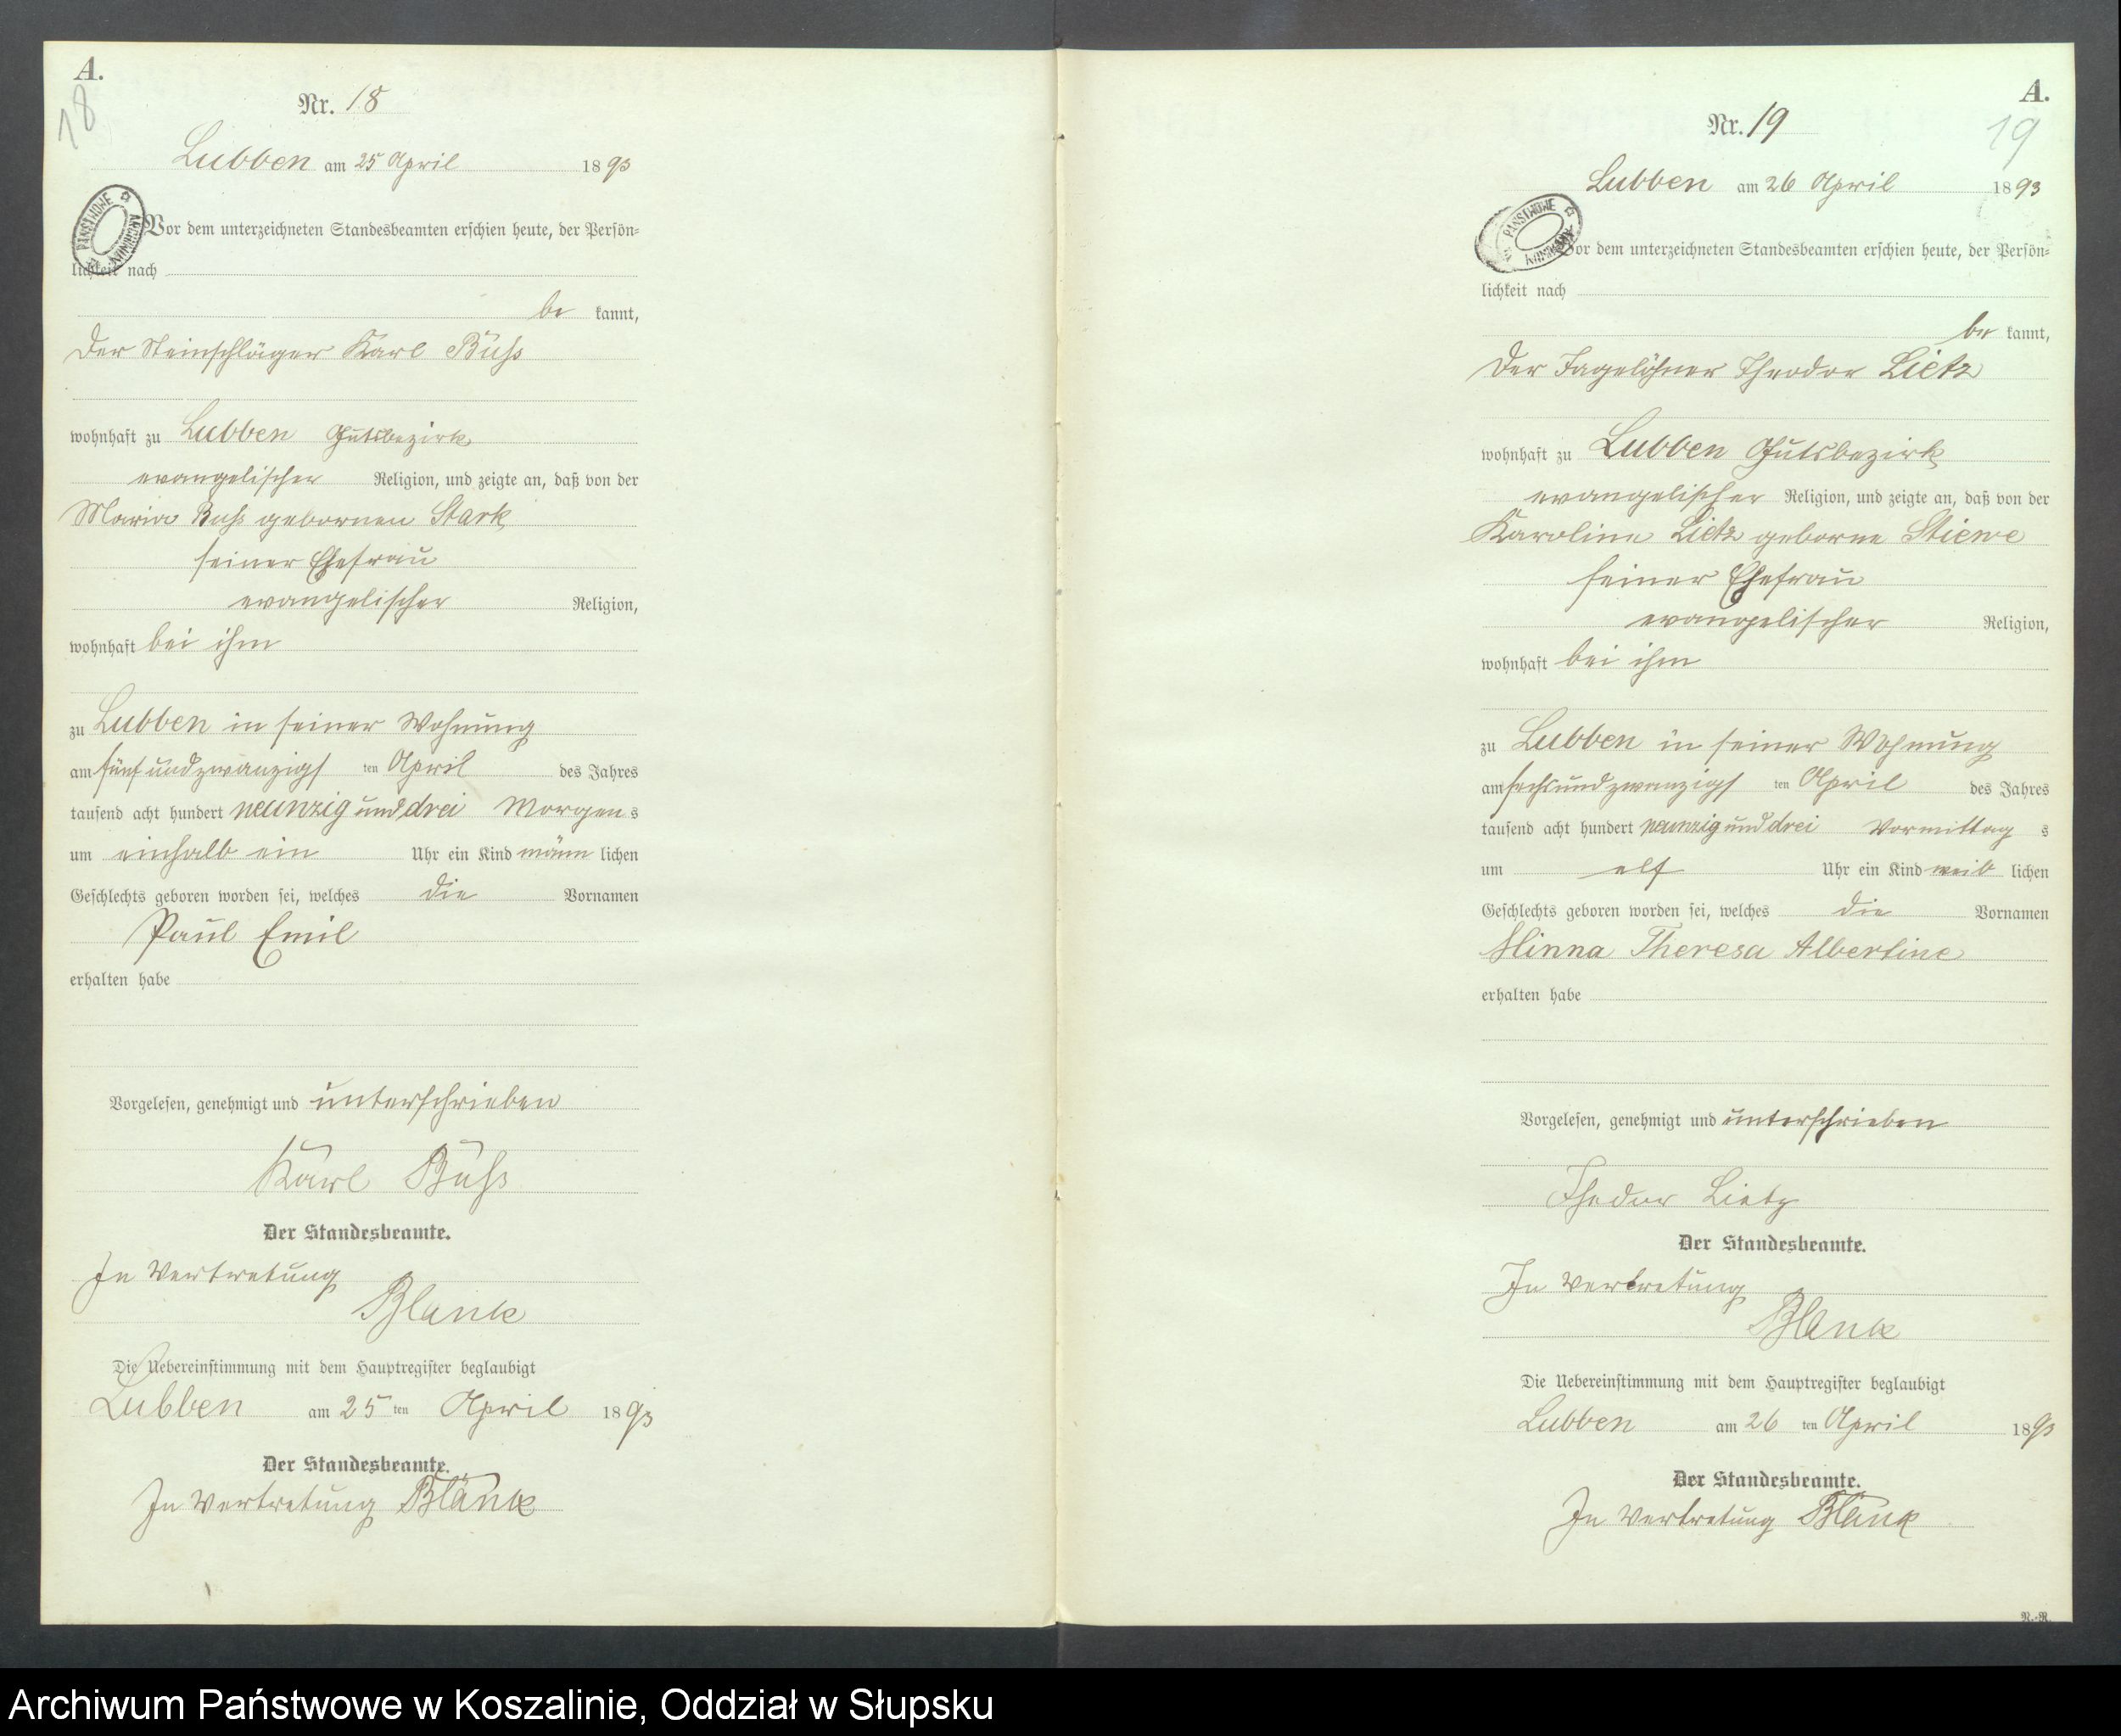 A.
18
Nr. 18
Lubben am 25 April 1893
Vor dem unterzeichneten Standesbeamten erschien heute, der Persön=
lichkeit nach
be kannt,
der Steinschläger Karl Buss
wohnhaft zu Lubben Gutsbezirk
evangelischer Religion, und zeigte an, daß von der
Maria Buss gebornen Stark
seiner Ehefrau
evangelischer Religion,
wohnhaft bei ihm
zu Lubben in seiner Wohnung
am fünfundzwanzigs ten April des Jahres
tausend acht hundert neunzig und drei Morgens
um einhalb ein Uhr ein Kind männ lichen
Geschlechts geboren worden sei, welches die Vornamen
Paul Emil
erhalten habe
Vorgelesen, genehmigt und unterschrieben
Karl Buss
Der Standesbeamte.
In Vertretung
Blank
Die Uebereinstimmung mit dem Hauptregister beglaubigt
Lubben am 25 ten April 1893
Der Standesbeamte.
In Vertretung Blank
PAŃSTWOWE ARCHIWUM
A.
19
Nr. 19
Lubben am 26 April 1893
Vor dem unterzeichneten Standesbeamten erschien heute, der Persön=
lichkeit nach
be kannt,
der Tagelöhner Theodor Lietz
wohnhaft zu Lubben Gutsbezirk
evangelischer Religion, und zeigte an, daß von der
Karoline Lietz geborne Stiewe
seiner Ehefrau
evangelischer Religion,
wohnhaft bei ihm
zu Lubben in seiner Wohnung
am sechsundzwanzigs ten April des Jahres
tausend acht hundert neunzig und drei Vormittag s
um elf Uhr ein Kind weib lichen
Geschlechts geboren worden sei, welches die Vornamen
Minna Theresa Albertine
erhalten habe
Vorgelesen, genehmigt und unterschrieben
Thedor Lietz
Der Standesbeamte.
In Vertretung
Blank
Die Uebereinstimmung mit dem Hauptregister beglaubigt
Lubben am 26 ten April 1893
Der Standesbeamte.
In Vertretung Blank
N.-R.
PAŃSTWOWE ARCHIWUM
Archiwum Państwowe w Koszalinie, Oddział w Słupsku